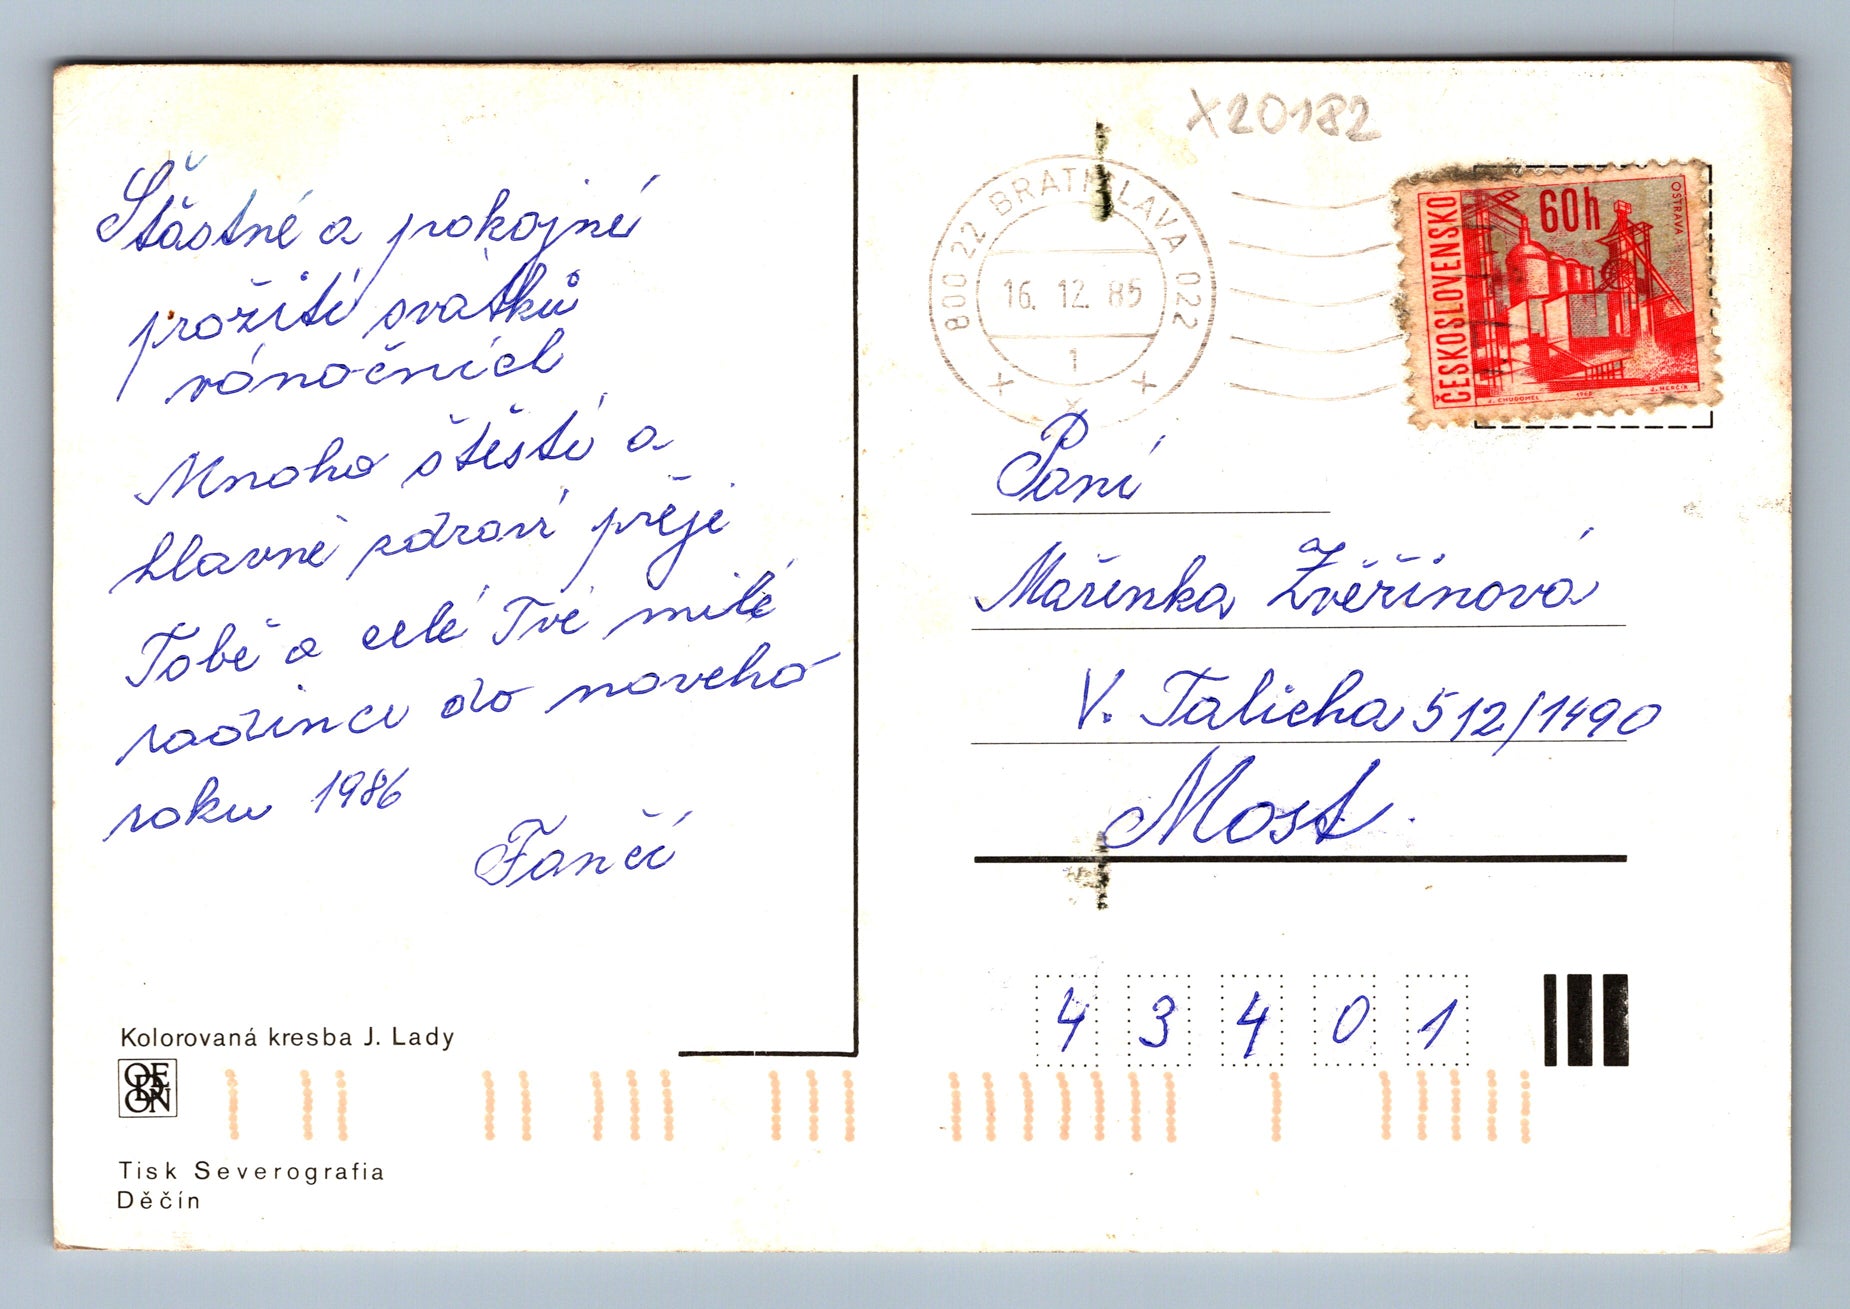 Šťastné a pokojné
prožití svátků
vánočních
Mnoho štěstí a
hlavně zdraví přeji
Tobě a celé Tvé milé
rodince do nového
roku 1986
Fančí
Kolorovaná kresba J. Lady
ODEON
Tisk Severografia
Děčín
X20182
800 22 BRATISLAVA 022
16. 12. 85
1
ČESKOSLOVENSKO
60h
OSTRAVA
J. CHUDOMEL
1966
J. HERČÍK
Paní
Mařenka Zvěřinová
V. Talicha 512/1490
Most.
43401